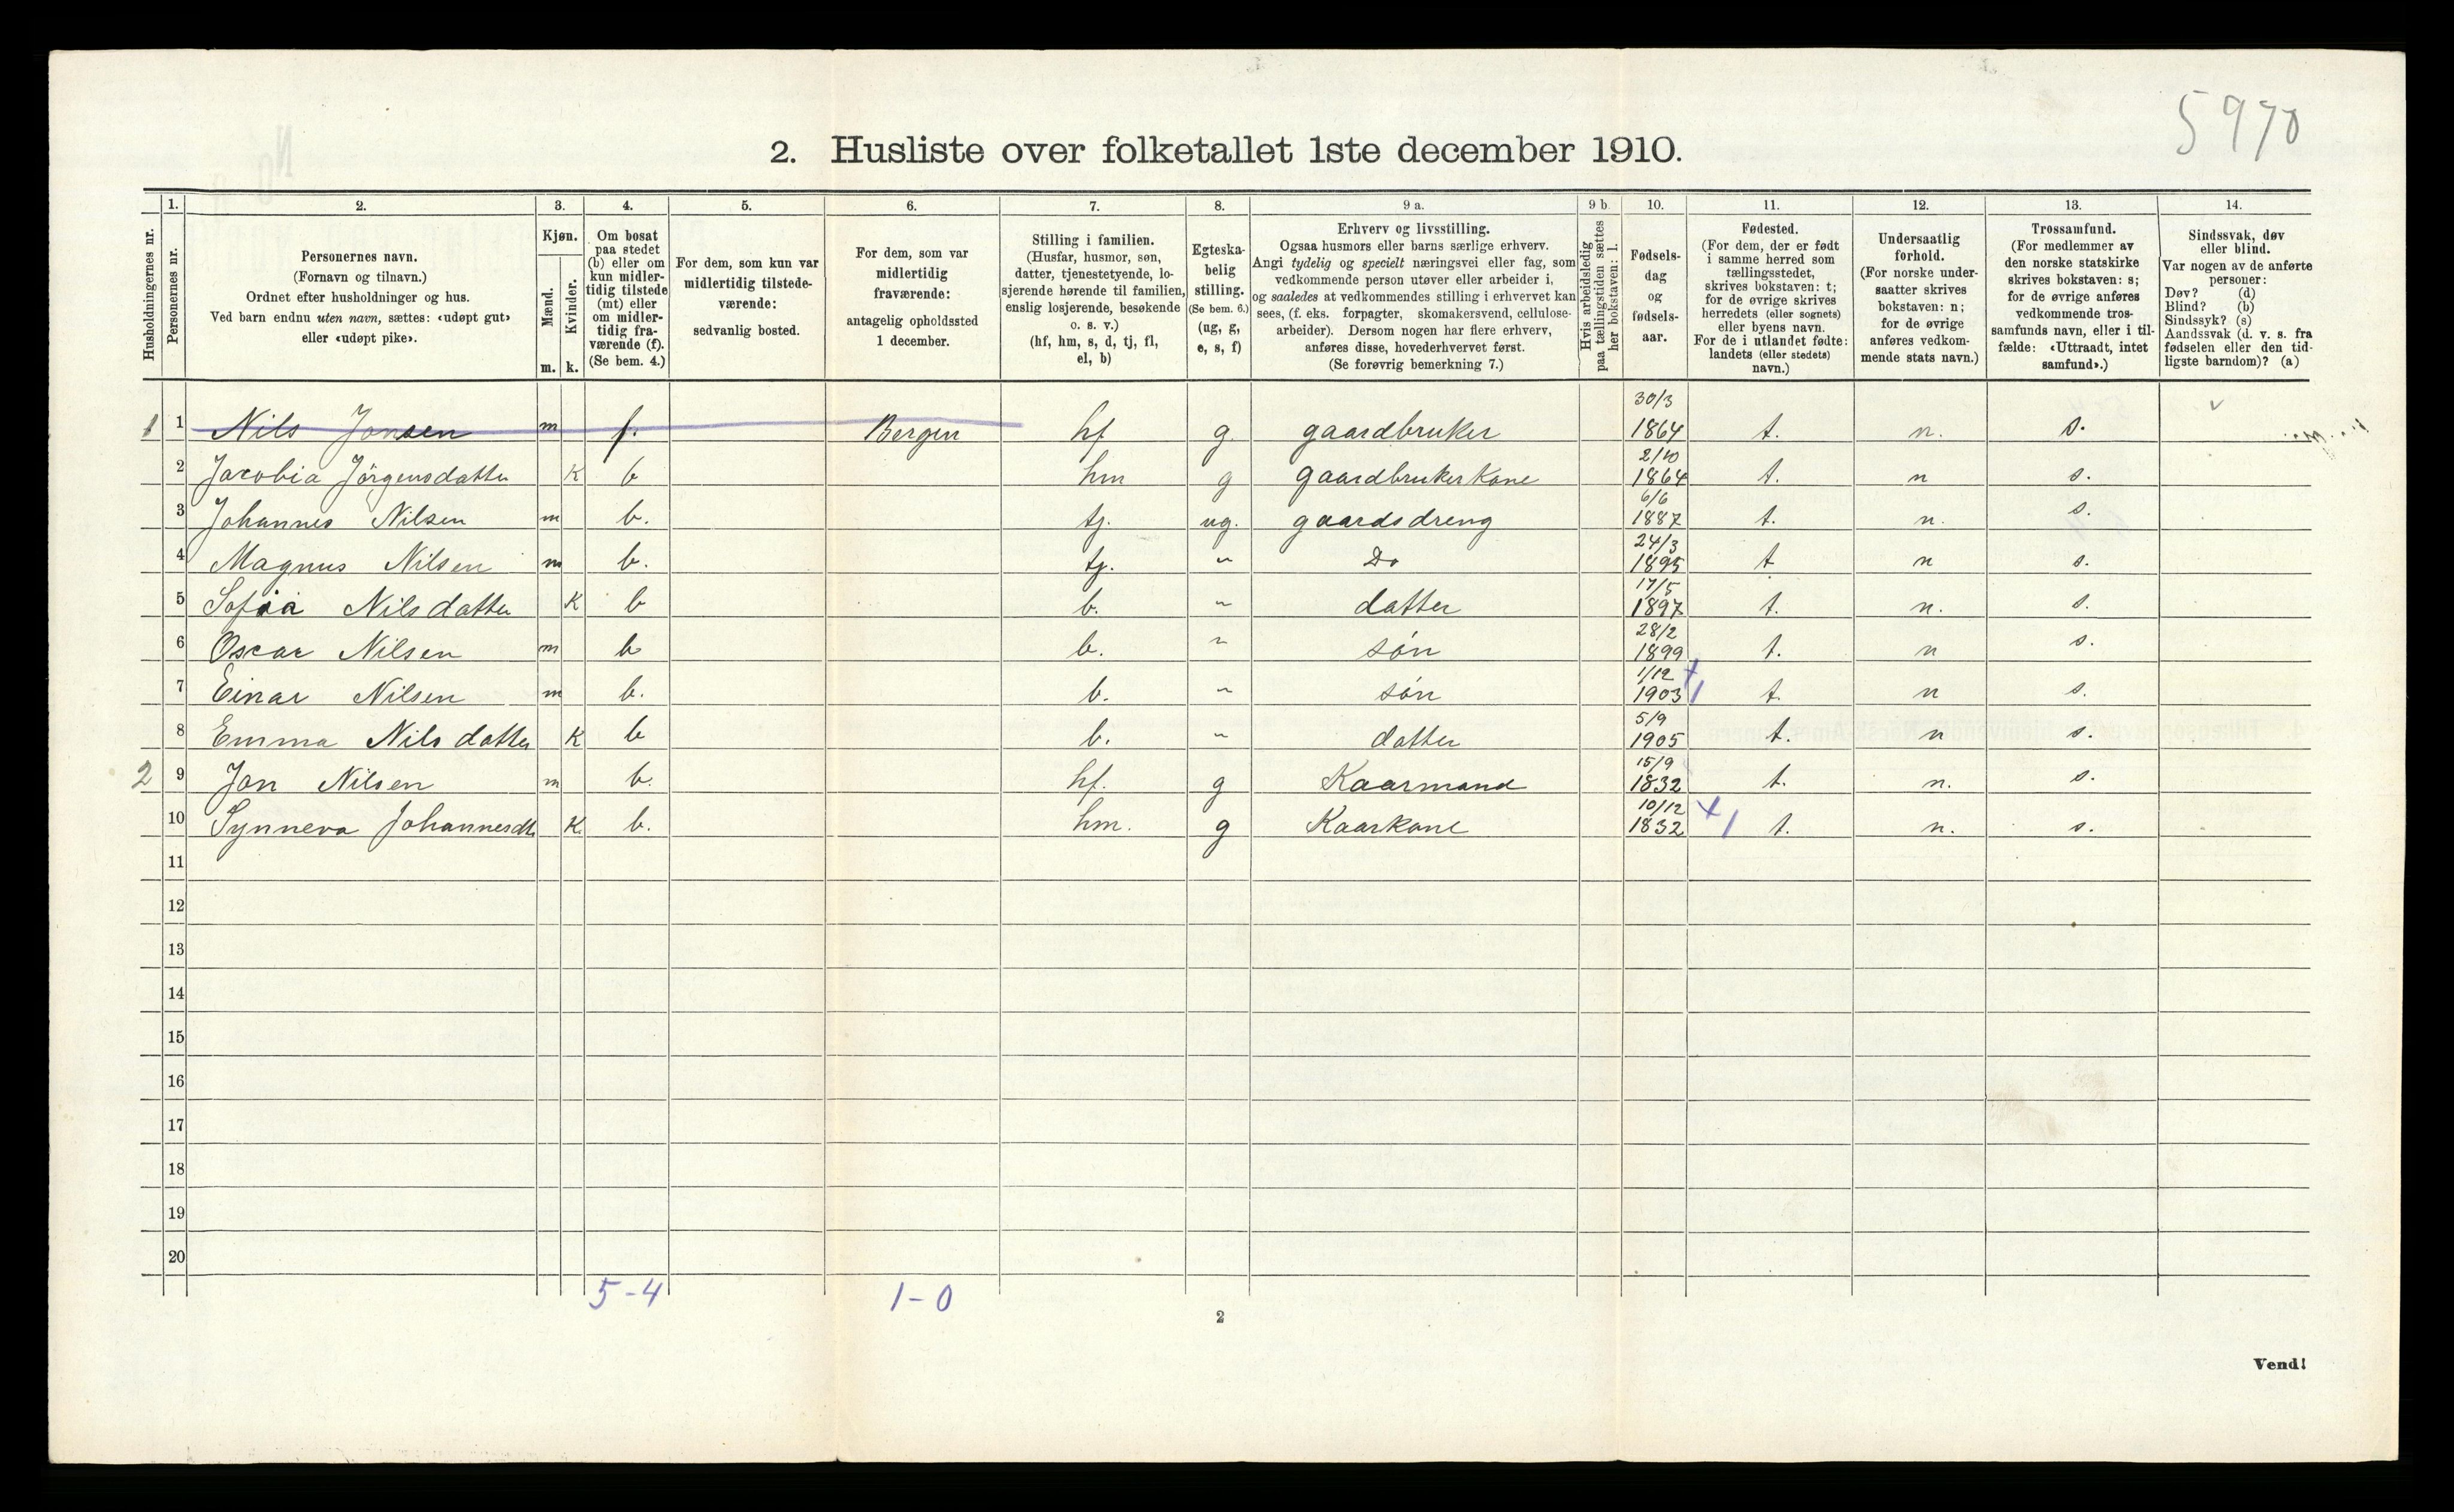 5970
2. Husliste over folketallet 1ste december 1910.
Husholdningernes nr.
1. Personernes nr.
2. Personernes navn. (Fornavn og tilnavn.) Ordnet efter husholdninger og hus. Ved barn endnu uten navn, sættes: «udøpt gut» eller «udøpt pike».
3. Kjøn. Mænd. m. Kvinder. k.
4. Om bosat paa stedet (b) eller om kun midlertidig tilstede (mt) eller om midlertidig fraværende (f). (Se bem. 4.)
5. For dem, som kun var midlertidig tilstedeværende: sedvanlig bosted.
6. For dem, som var midlertidig fraværende: antagelig opholdssted 1 december.
7. Stilling i familien. (Husfar, husmor, søn, datter, tjenestetyende, losjerende hørende til familien, enslig losjerende, besøkende o. s. v.) (hf, hm, s, d, tj, fl, el, b)
8. Egteskabelig stilling. (Se bem. 6.) (ug, g, e, s, f)
9 a. Erhverv og livsstilling. Ogsaa husmors eller barns særlige erhverv. Angi tydelig og specielt næringsvei eller fag, som vedkommende person utøver eller arbeider i, og saaledes at vedkommendes stilling i erhvervet kan sees, (f. eks. forpagter, skomakersvend, cellulosearbeider). Dersom nogen har flere erhverv, anføres disse, hovederhvervet først. (Se forøvrig bemerkning 7.)
9 b. Hvis arbeidsledig paa tællingstiden sættes her bokstaven: l.
10. Fødselsdag og fødselsaar.
11. Fødested. (For dem, der er født i samme herred som tællingsstedet, skrives bokstaven: t; for de øvrige skrives herredets (eller sognets) eller byens navn. For de i utlandet fødte: landets (eller stedets) navn.)
12. Undersaatlig forhold. (For norske undersaatter skrives bokstaven: n; for de øvrige anføres vedkommende stats navn.)
13. Trossamfund. (For medlemmer av den norske statskirke skrives bokstaven: s; for de øvrige anføres vedkommende trossamfunds navn, eller i tilfælde: «Uttraadt, intet samfund».)
14. Sindssvak, døv eller blind. Var nogen av de anførte personer: Døv? (d) Blind? (b) Sindssyk? (s) Aandssvak (d. v. s. fra fødselen eller den tidligste barndom)? (a)
1 1 Nils Jonsen m f. Bergen hf g. gaardbruker 30/3 1864 t. n. s.
2 Jacobia Jörgensdatter K b hm g gaardbrukerkone 2/10 1864 t. n s.
3 Johannes Nilsen m b. tj. ug. gaardsdreng 6/6 1887 t. n. s.
4 Magnus Nilsen m b. tj. " Do 24/3 1895 t n s.
5 Sofia Nilsdatter K b b. " datter 17/5 1897 t. n. s.
6 Oscar Nilsen m b b. " søn 28/2 1899 t. n s.
7 Einar Nilsen m b. b. " søn 1/12 1903 t. n s.
8 Emma Nilsdatter K b b. " datter 5/9 1905 t. n s.
2 9 Jon Nilsen m b. hf. g Kaarmand 15/9 1832 t. n. s.
10 Synneva Johannesdtr K b. hm. g Kaarkone 10/12 1832 t. n. s.
11
12
13
14
15
16
17
18
19
20
5-4 1-0
2
Vend!